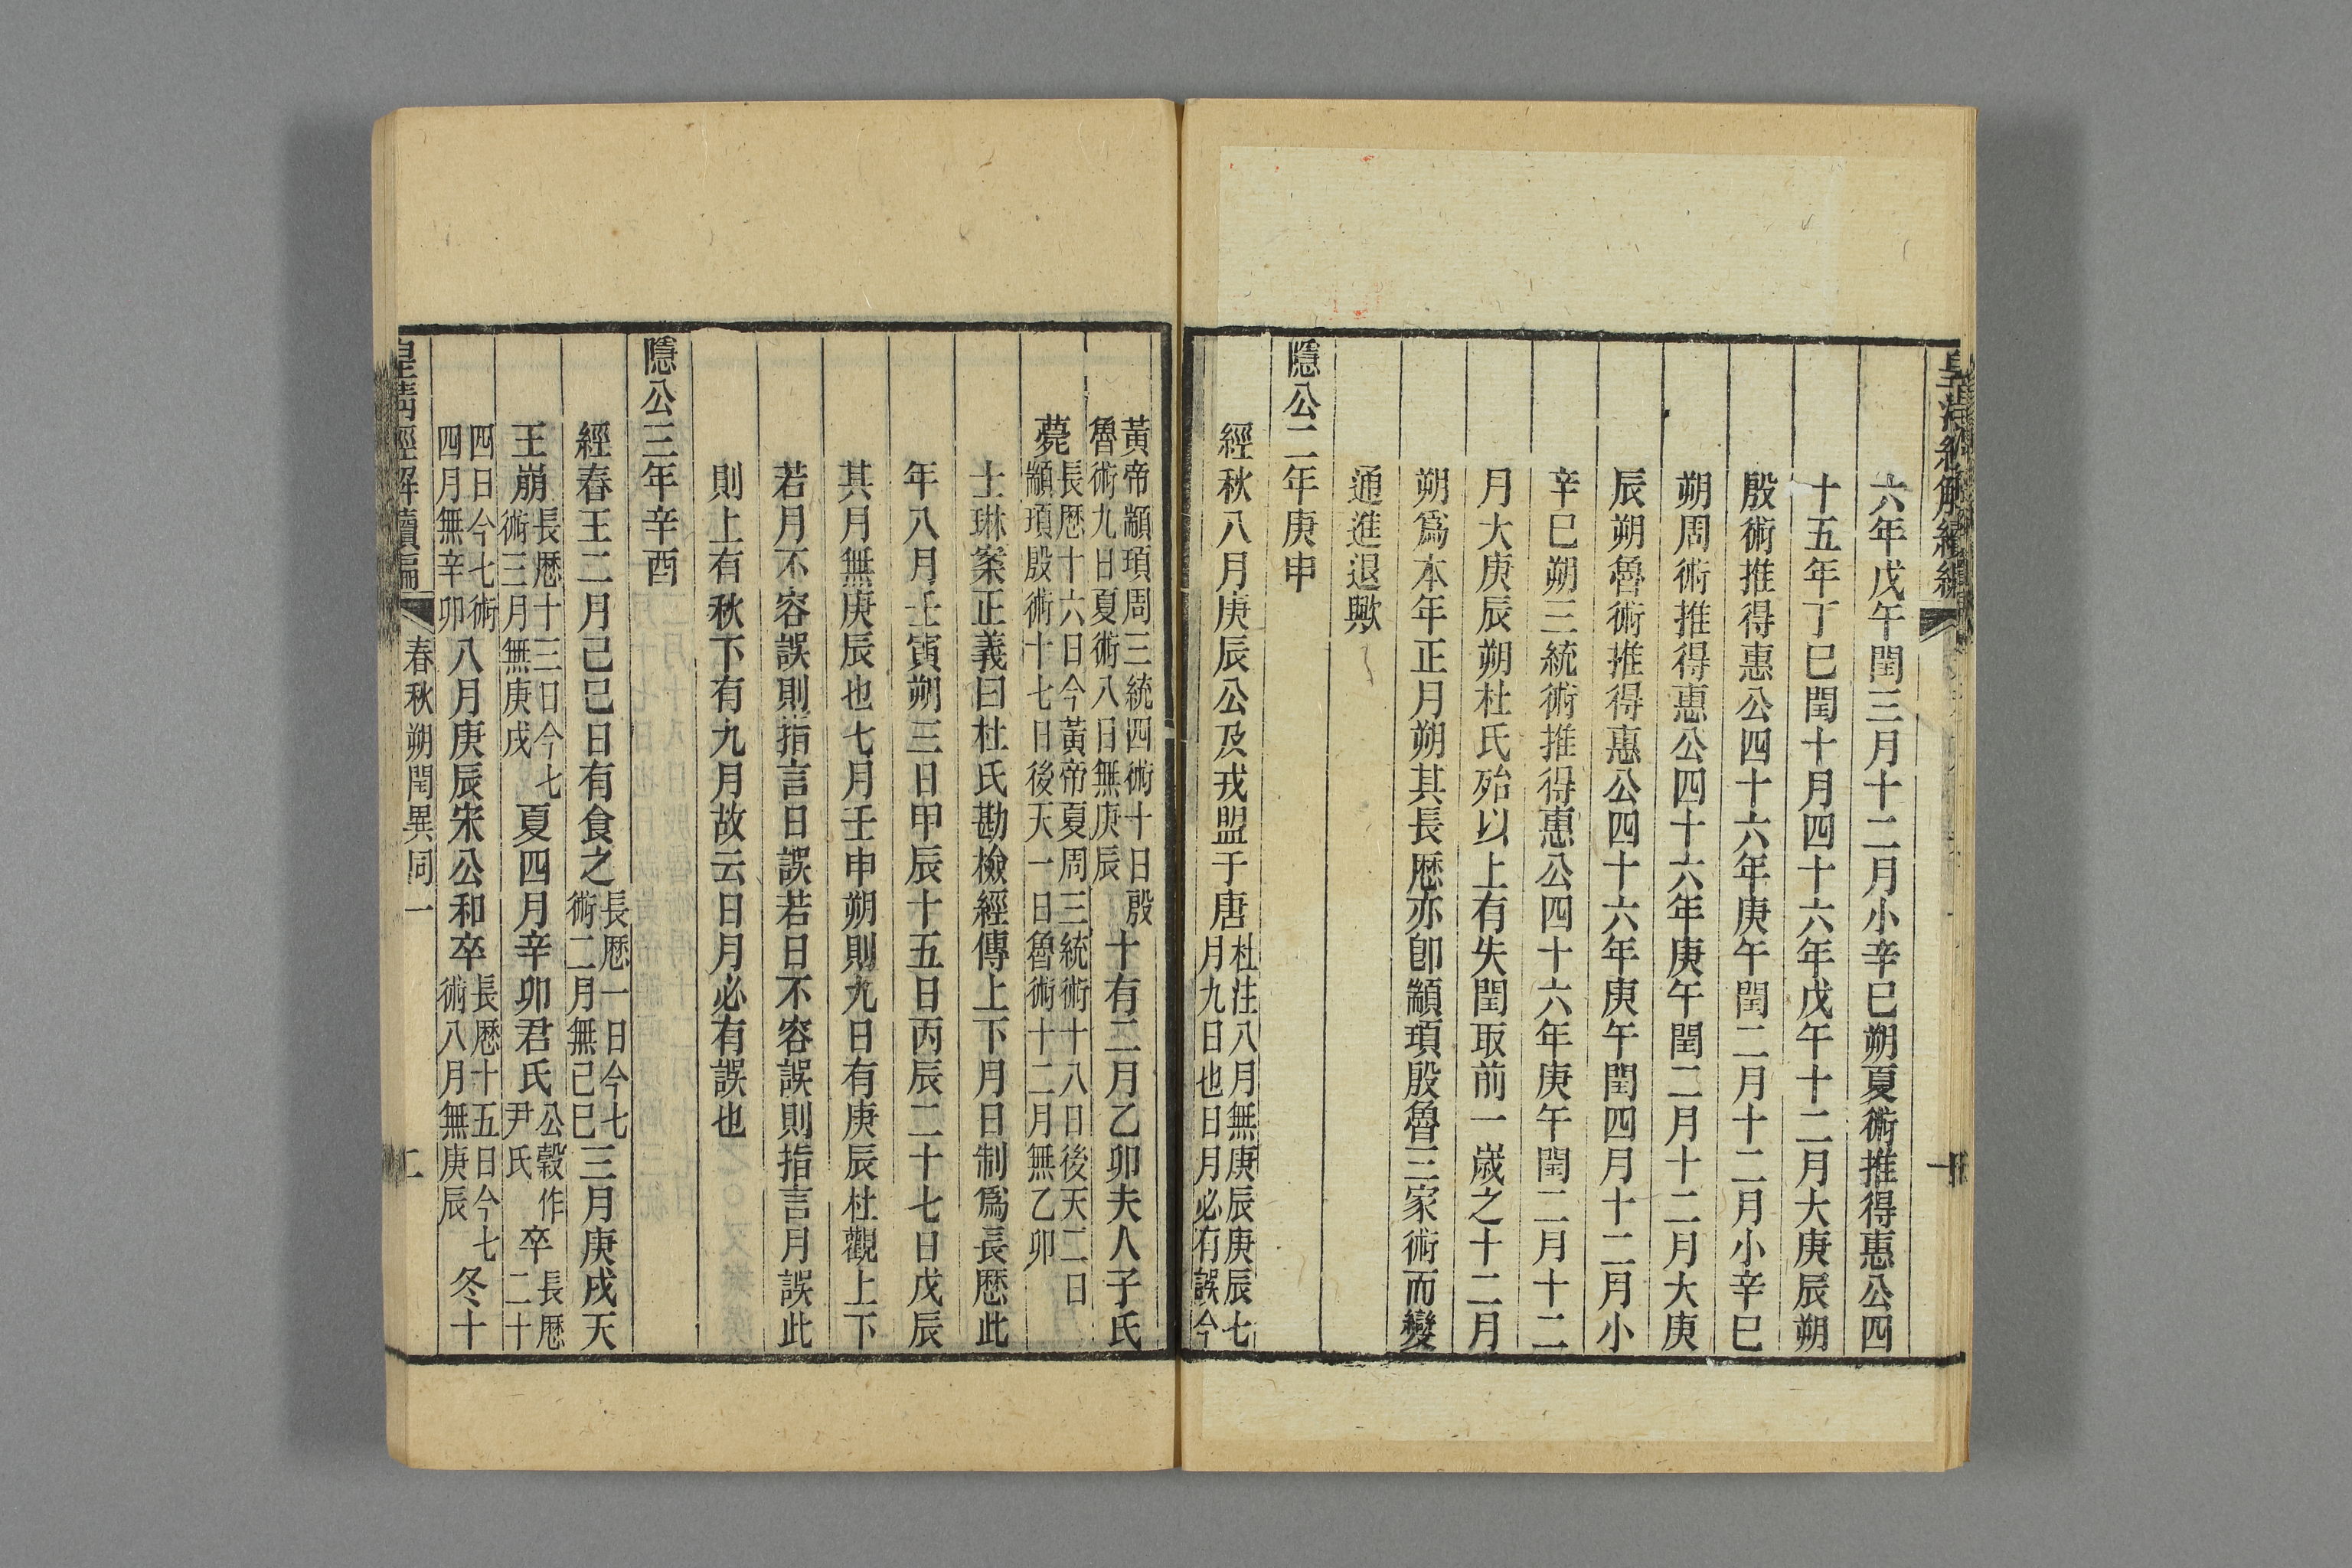 六年戊午閏三月十二月小辛巳朔夏術推得惠公四
十五年丁巳閏十月四十六年戊午十二月大庚辰朔
殷術推得惠公四十六年庚午閏二月十二月小辛巳
朔周術推得惠公四十六年庚午閏二月十二月大庚
辰朔魯術推得惠公四十六年庚午閏四月十二月小
辛巳朔三統術推得惠公四十六年庚午閏二月十二
月大庚辰朔杜氏殆以上有失閏取前一歲之十二月
朔爲本年正月朔其長歷亦卽顓頊殷魯三家術而變
通進退歟
隱公二年庚申
經秋八月庚辰公及戎盟于唐杜注八月無庚辰庚辰七月九日也日月必有誤今
黃帝顓頊周三統四術十日殷魯術九日夏術八日無庚辰十有二月乙卯夫人子氏
薨長歷十六日今黃帝夏周三統術十八日後天二日顓頊殷術十七日後天一日魯術十二月無乙卯
士琳案正義曰杜氏勘檢經傳上下月日制爲長歷此
年八月壬寅朔三日甲辰十五日丙辰二十七日戊辰
其月無庚辰也七月壬申朔則九日有庚辰杜觀上下
若月不容誤則指言日誤若日不容誤則指言月誤此
則上有秋下有九月故云日月必有誤也
隱公三年辛酉
經春王二月己巳日有食之長歷一日今七術二月無己巳三月庚戌天
王崩長歷十三日今七術三月無庚戌夏四月辛卯君氏公穀作尹氏卒長歷二十
四日今七術四月無辛卯八月庚辰宋公和卒長歷十五日今七術八月無庚辰冬十
皇清經解續編 春秋朔閏異同一 二